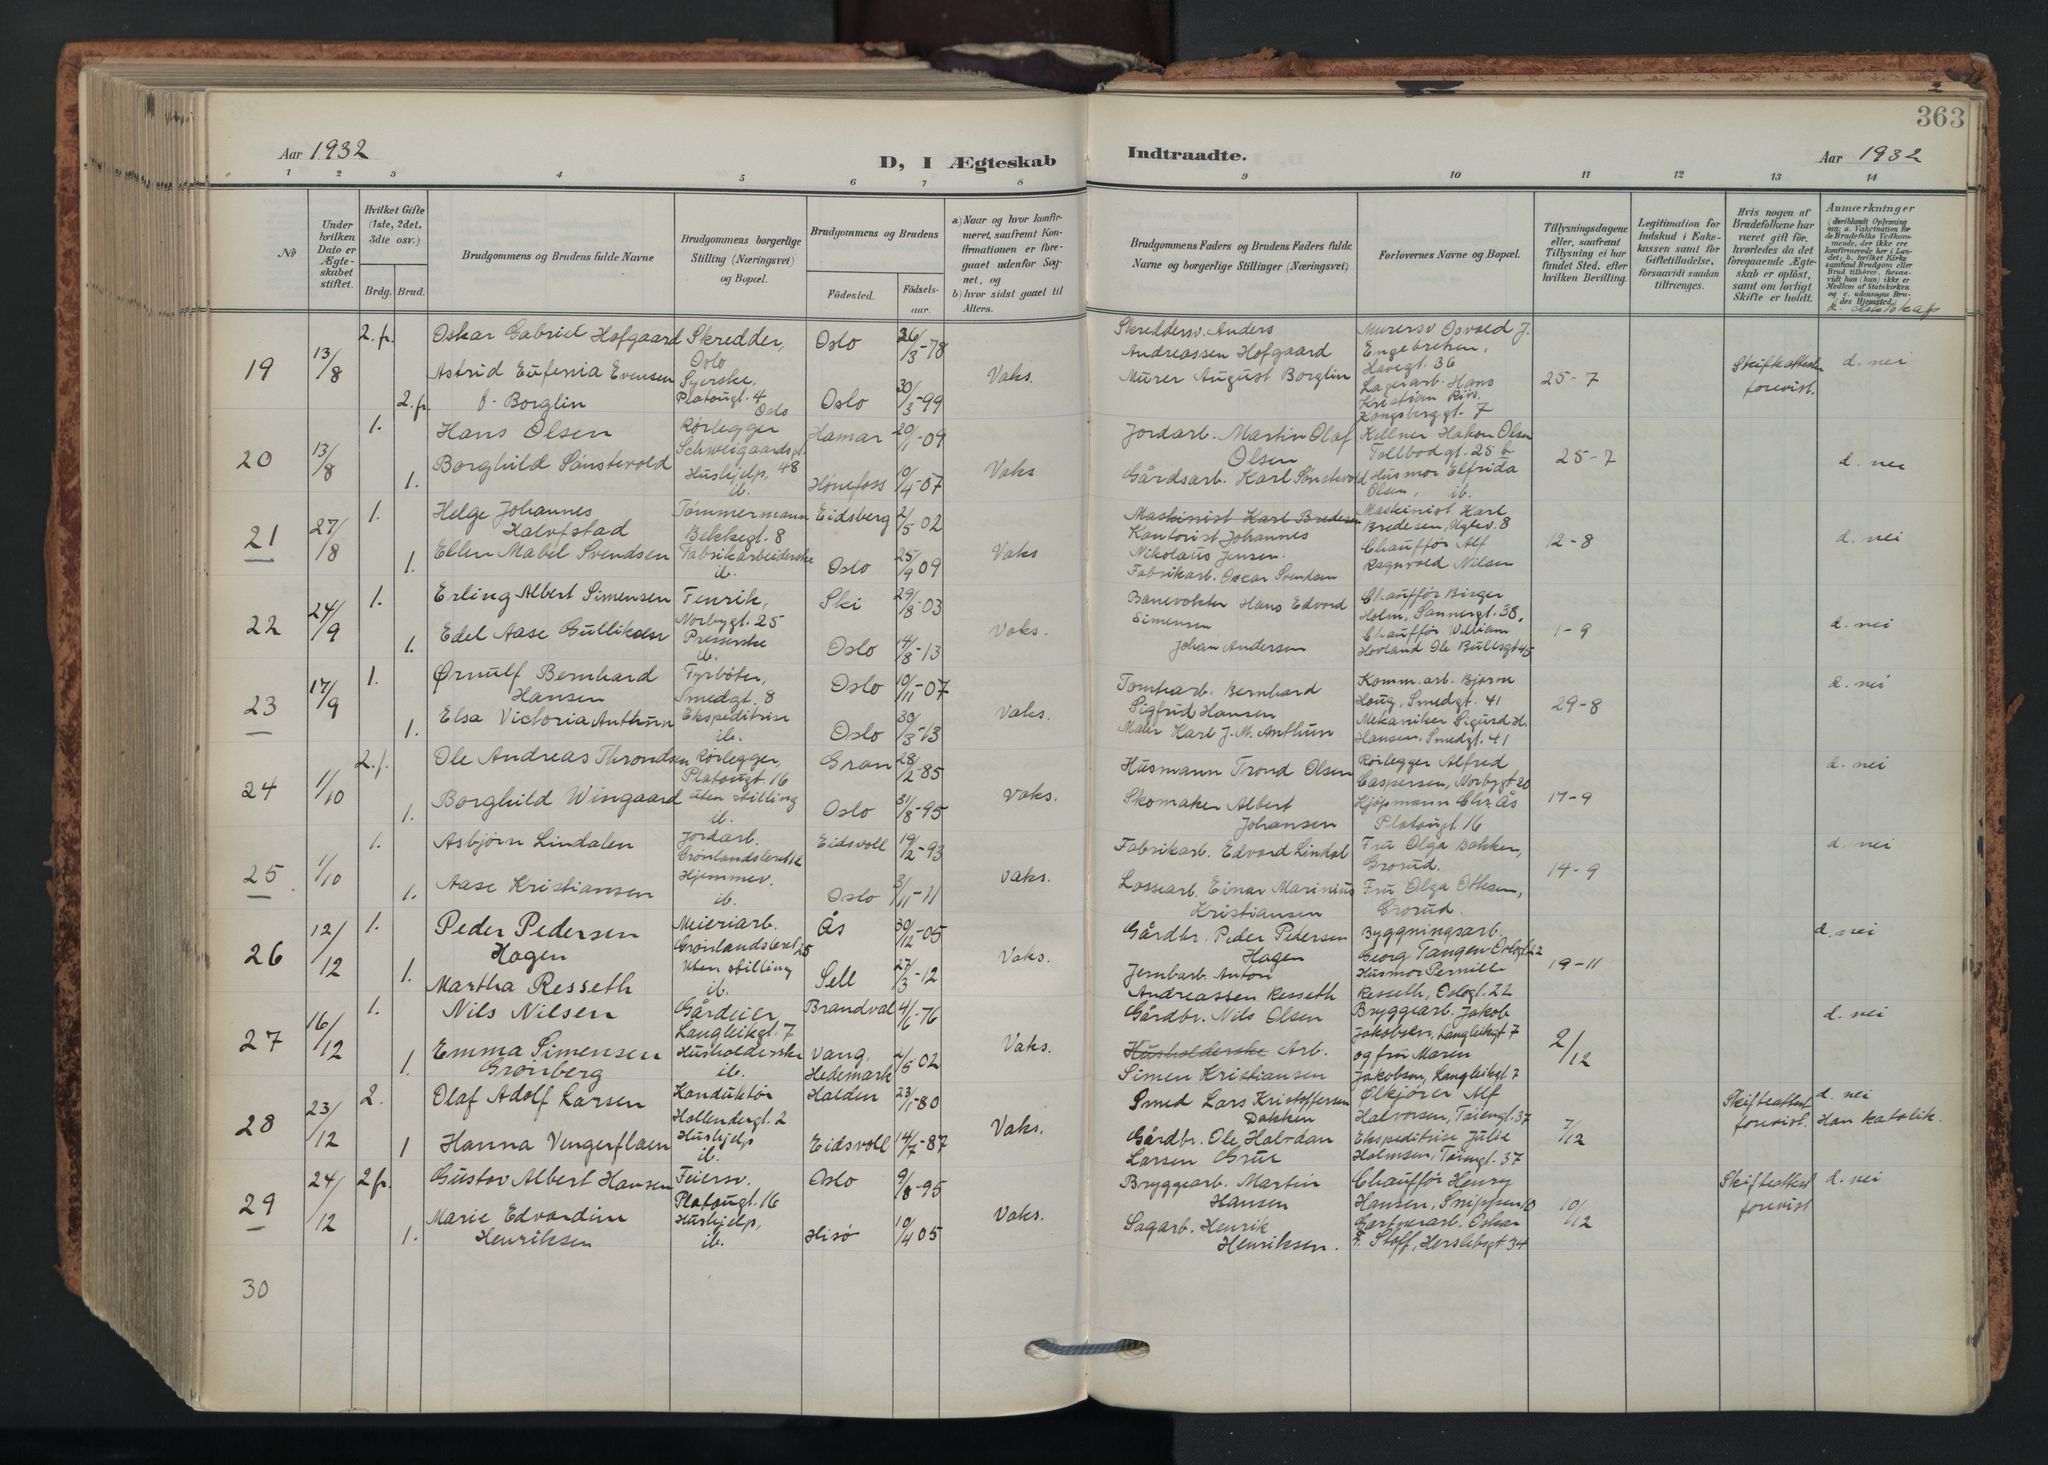 363
Aar 1932
D, I Ægteskab
Indtraadte.
Aar 1932
1 2 3 4 5 6 7 8 9 10 11 12 13 14
No
Under hvilken Dato er Ægteskabet stiftet.
Hvilket Gifte (1ste, 2det, 3die osv.)
Brdg. Brud.
Brudgommens og Brudens fulde Navne
Brudgommens borgerlige Stilling (Næringsvei) og Bopæl.
Brudgommens og Brudens
Födested.
Födselsaar.
a) Naar og hvor konfirmeret, saafremt Konfirmationen er foregaaet udenfor Sognet, og
b) hvor sidst gaaet til Alters.
Brudgommens Faders og Brudens Faders fulde Navne og borgerlige Stillinger (Næringsvei)
Forlovernes Navne og Bopæl.
Tillysningsdagene eller, saafremt Tillysning ei har fundet Sted, efter hvilken Bevilling.
Legitimation for Indskud i Enkekassen samt for Giftetilladelse, forsaavidt saadan tiltrænges.
Hvis nogen af Brudefolkene har været gift för, hvorledes da det foregaaende Ægteskab er oplöst, samt om lovligt Skifte er holdt.
Anmærkninger
19 13/8 2. fr. Oskar Gabriel Hofgaard Skredder, Oslo Oslo 26/3-78
Astrid Eufemia Evensen Syerske, Platougt. 4
2. fr. f. Borglin Oslo Oslo 30/3-99 Vaks.
Skreddersv. Anders Andreassen Hofgaard
Murer August Borglin
Murersv Osvald J. Engebretsen, Havegt 36
Lagerarb. Hans Kristian Riis. Kongsberggt. 7
25-7 Skifteattest forevist. d. nei
20 13/8 1. Hans Olsen Rørlegger Schweigaardsgt. 48 Hamar 20/1-09
1. Borghild Sønstevold Hushjelp, ib. Hønefoss 10/4-07 Vaks
Jordarb. Martin Olaf Olsen
Gårdsarb. Karl Sønstevold
Kellner Hakon Olsen Tollbodgt. 25 b
Husmor Elfrida Olsen, ib.
25-7 d. nei
21 27/8 1. Helge Johannes Halvfstad Tømmermann Bekkegt. 8 Eidsberg 2/5 02
1. Ellen Mabel Svendsen Fabrikarbeiderske ib. Oslo 25/9 09 Vaks
Maskinist Karl Bredesen
Kontorist Johannes Nikolaus Jensen.
Fabrikarb. Oscar Svendsen
Maskinist Karl Bredesen, 8
Chauffør Alf Ragnvald Nilsen
12-8 d. nei
22 24/9 1. Erling Albert Simensen Fenrik, Norbygt. 25 Ski 29/8-03
1. Edel Aase Gulliksen Presserske ib. Oslo 14/8-13 Vaks.
Banevokter Hans Edvard Simensen
Johan Andersen
Chauffør Birger Holm, Sannergt. 38,
Chauffør William Hovland Ole Bullsgt 45
1-9 d. nei
23 17/9 1. Ørnulf Bernhard Hansen Fyrbøter, Smedgt. 8 Oslo 10/11-07
1. Elsa Victoria Anthun Ekspeditrise ib. Oslo 30/3-13 Vaks.
Tomtearb. Bernhard Sigfrid Hansen
Maler Karl J. M. Anthun
Komm. arb. Bjarne Houg, Smedgt. 41
Mekaniker Sigurd H. Hansen, Smedgt. 41
29-8 d. nei
24 1/10 2. f. Ole Andreas Throndsen Rørlegger, Platougt. 16 Gran 28/2-85
1. Borghild Wingaard uten stilling ib. Oslo 31/8-95 Vaks.
Husmann Trond Olsen
Skomaker Albert Johansen
Rørlegger Alfred Caspersen, Norbygt 20
Kjøpmann Chr. Ås Platougt 16
17-9 d. nei
25 1/10 1. Asbjørn Lindalen Jordarb. Grønlandsleret 12 Eidsvoll 19/12-93
1. Aase Kristiansen Hjemmev. ib. Oslo 3/11-11 Vaks.
Fabrikarb. Edvard Lindal
Lossearb. Einar Marinius Kristiansen
Fru Olga Bakken, Grorud.
Fru Olga Ottesen, Grorud.
14-9 d. nei
26 12/12 1. Peder Pedersen Hagen Meieriarb. Grønlandsleret 25 Ås 30/12-05
1. Martha Resseth Uten stilling ib. Sell 27/3-12 Vaks.
Gårdbr. Peder Pedersen Hagen
Jernbarb. Anton Andreassen Resseth
Byggningsarb. Georg Tangen Oslogt 22
Husmor Pernille Resseth, Oslogt. 22
19-11 d. nei
27 16/12 1. Nils Nilsen Gårdeier, Langleikgt. 7 Brandval 4/6-76
1. Emma Simensen Grønberg Husholderske ib. Vang, Hedemark 2/5 02 Vaks.
Gårdbr. Nils Olsen
Husholderske Arb. Simen Kristiansen
Bryggearb. Jakob Jakobsen, Langleikgt 7
og fru Maren Jakobsen, Langleikgt. 7
2/12 d. nei
28 23/12 2. Olaf Adolf Larsen Konduktør Hollendergt. 2 Halden 23/1-80
1 Hanna Vengerflaen Hushjelp ib. Eidsvoll 14/7-87 Vaks.
Smed Lars Kristoffersen Dokken
Gårdbr. Ole Halvdan Larsen Grue
Ølkjører Alf Halvorsen, Tøiengt. 37
Ekspeditrise Julie Holmsen, Tøiengt. 37
7/12 Skifteattest forevist. d. nei Han katolik.
29 24/12 2 fr. Gustav Albert Hansen Feiersv. Platougt. 16 Oslo 9/8-95
1. Marie Edvardine Henriksen Hushjelp, ib. Hisø 10/4 05 Vaks.
Bryggearb. Martin Hansen
Sagarb. Henrik Henriksen.
Chauffør Henry Hansen, Snippen 10
Gartnerarb. Oskar F. Stoff, Herslebsgt 34
10/12 Skifteattest forevist d. nei
30